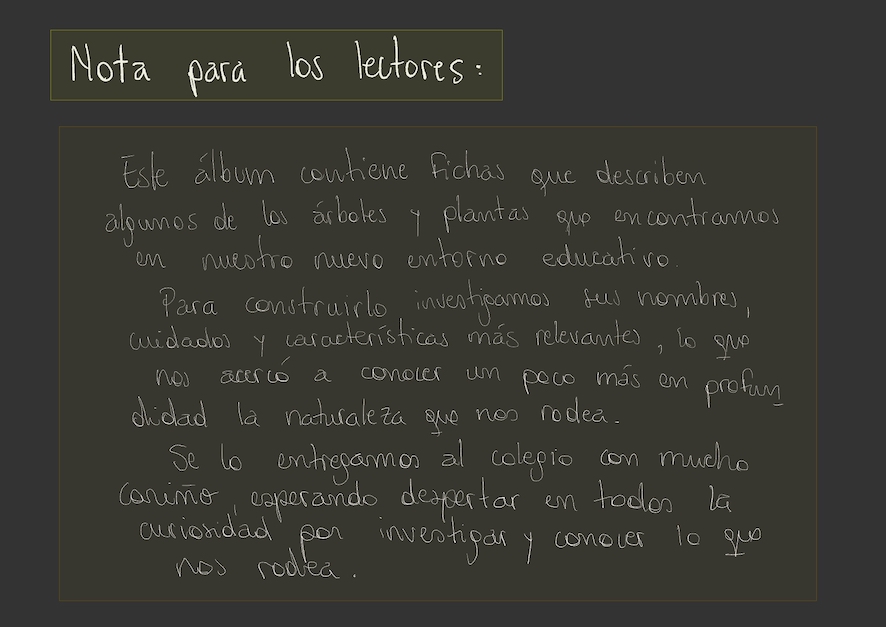 Nota para los lectores:
Este álbum contiene fichas que describen
algunos de los árboles y plantas que encontramos
en nuestro nuevo entorno educativo.
Para construirlo investigamos sus nombres,
cuidados y características más relevantes, lo que
nos acercó a conocer un poco más en profun_
didad la naturaleza que nos rodea.
Se lo entregamos al colegio con mucho
cariño, esperando despertar en todos la
curiosidad por investigar y conocer lo que
nos rodea.